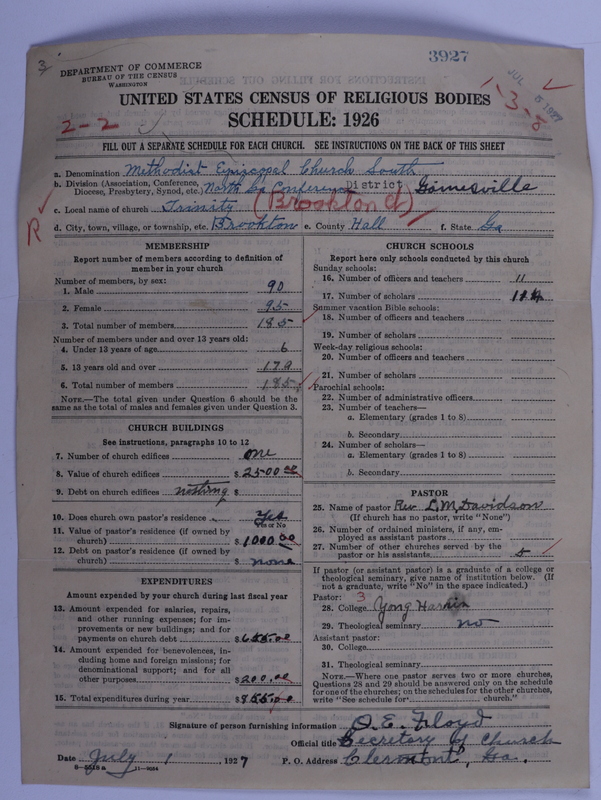 3
3927
DEPARTMENT OF COMMERCE
BUREAU OF THE CENSUS
WASHINGTON
JUL 5 1927
1-3-8
UNITED STATES CENSUS OF RELIGIOUS BODIES
2-2
SCHEDULE: 1926
FILL OUT A SEPARATE SCHEDULE FOR EACH CHURCH. SEE INSTRUCTIONS ON THE BACK OF THIS SHEET
a. Denomination Methodist Episcopal Church South
b. Division (Association, Conference, Diocese, Presbytery, Synod, etc.) North Ga Conference District Gainesville
c. Local name of church Trinity (Brookton
d. City, town, village, or township, etc. Brookton e. County Hall f. State Ga
R
MEMBERSHIP
Report number of members according to definition of
member in your church
Number of members, by sex:
1. Male 90
2. Female 95
3. Total number of members 185
Number of members under and over 13 years old:
4. Under 13 years of age 6
5. 13 years old and over 179
6. Total number of members 185
NOTE.—The total given under Question 6 should be the
same as the total of males and females given under Question 3.
CHURCH BUILDINGS
See instructions, paragraphs 10 to 12
7. Number of church edifices one
8. Value of church edifices $ 2500 00
9. Debt on church edifices nothing $
10. Does church own pastor's residence Yes
Yes or No
11. Value of pastor's residence (if owned by
church) $ 1000 00
12. Debt on pastor's residence (if owned by
church) $ none
EXPENDITURES
Amount expended by your church during last fiscal year
13. Amount expended for salaries, repairs,
and other running expenses; for im-
provements or new buildings; and for
payments on church debt $ 655.00
14. Amount expended for benevolences, in-
cluding home and foreign missions; for
denominational support; and for all
other purposes $ 200.00
15. Total expenditures during year $ 855.00
CHURCH SCHOOLS
Report here only schools conducted by this church
Sunday schools:
16. Number of officers and teachers 11
17. Number of scholars 114
Summer vacation Bible schools:
18. Number of officers and teachers
19. Number of scholars
Week-day religious schools:
20. Number of officers and teachers
21. Number of scholars
Parochial schools:
22. Number of administrative officers
23. Number of teachers—
a. Elementary (grades 1 to 8)
b. Secondary
24. Number of scholars—
a. Elementary (grades 1 to 8)
b. Secondary
PASTOR
25. Name of pastor Rev L.M. Davidson
(If church has no pastor, write "None")
26. Number of ordained ministers, if any, em-
ployed as assistant pastors
27. Number of other churches served by the
pastor or his assistants 5
If pastor (or assistant pastor) is a graduate of a college or
theological seminary, give name of institution below. (If
not a graduate, write "No" in the space indicated.)
Pastor: 3
28. College Yong Harris
29. Theological seminary no
Assistant pastor:
30. College
31. Theological seminary
NOTE.—Where one pastor serves two or more churches,
Questions 28 and 29 should be answered only on the schedule
for one of the churches; on the schedules for the other churches,
write "See schedule for church."
Signature of person furnishing information O. E. Floyd
Official title Secretary of Church
Date July 1, 1927 P. O. Address Clermont, Ga.
11—9064